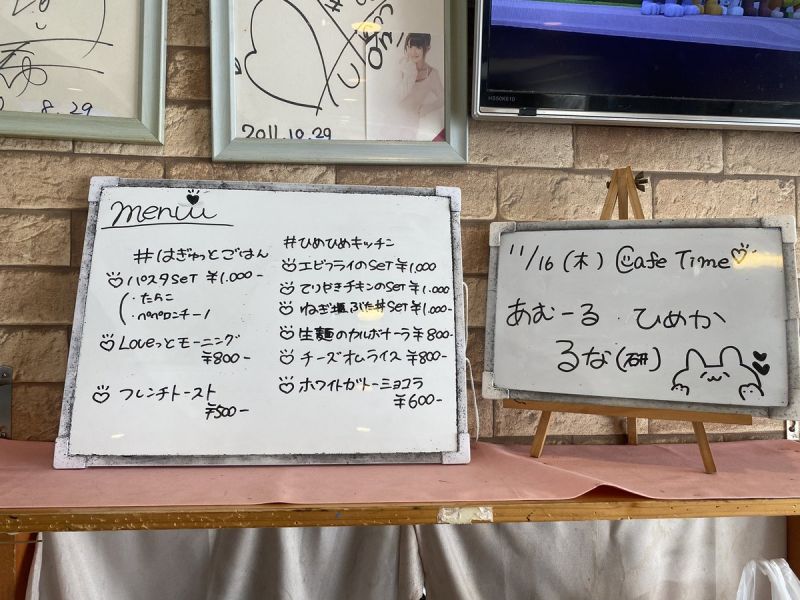 8.29
2011.10.29
HS50K610
menu
#はぎゅっとごはん
パスタSET ¥1.000-
・たらこ
・ペペロンチーノ
Loveっとモーニング
¥800-
フレンチトースト
¥500-
#ひめひめキッチン
エビフライのSET ¥1.000
てりやきチキンのSET ¥1.000
ねぎ塩ぶた丼SET ¥1.000-
生麺のカルボナーラ ¥800-
チーズオムライス ¥800-
ホワイトガトーショコラ
¥600-
11/16 (木) Cafe Time
あむーる・ひめか
るな(研)